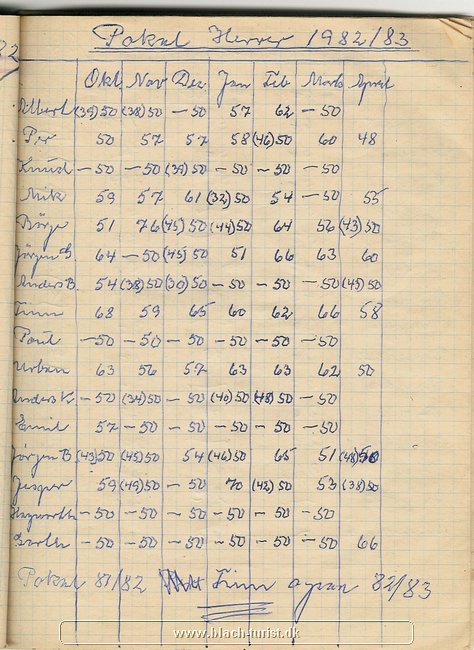 Pokal Herrer 1982/83
Okt Nov Dec Jan Feb Marts April
Albert (39)50 (38)50 -50 57 62 -50
Per 50 57 57 58 (46)50 60 48
Knud -50 -50 (39)50 -50 -50 -50
Mik 59 57 61 (32)50 54 -50 55
Börge 51 76 (45)50 (44)50 64 56 (43)50
Jörgen S. 64 -50 (45)50 51 66 63 60
Anders B. 54 (38)50 (30)50 -50 -50 -50 (45)50
Finn 68 59 65 60 62 66 58
Poul -50 -50 -50 -50 -50 -50
Urban 63 56 57 63 63 62 50
Anders K. -50 (34)50 -50 (40)50 (48)50 -50
Emil 57 -50 -50 -50 -50 -50
Jörgen B (43)50 (45)50 54 (46)50 65 51 (48)50
Jesper 59 (49)50 -50 70 (42)50 53 (38)50
-50 -50 -50 -50 -50 -50
-50 -50 -50 -50 -50 -50 66
Pokal 81/82 Finn 82/83
www.blach-turist.dk